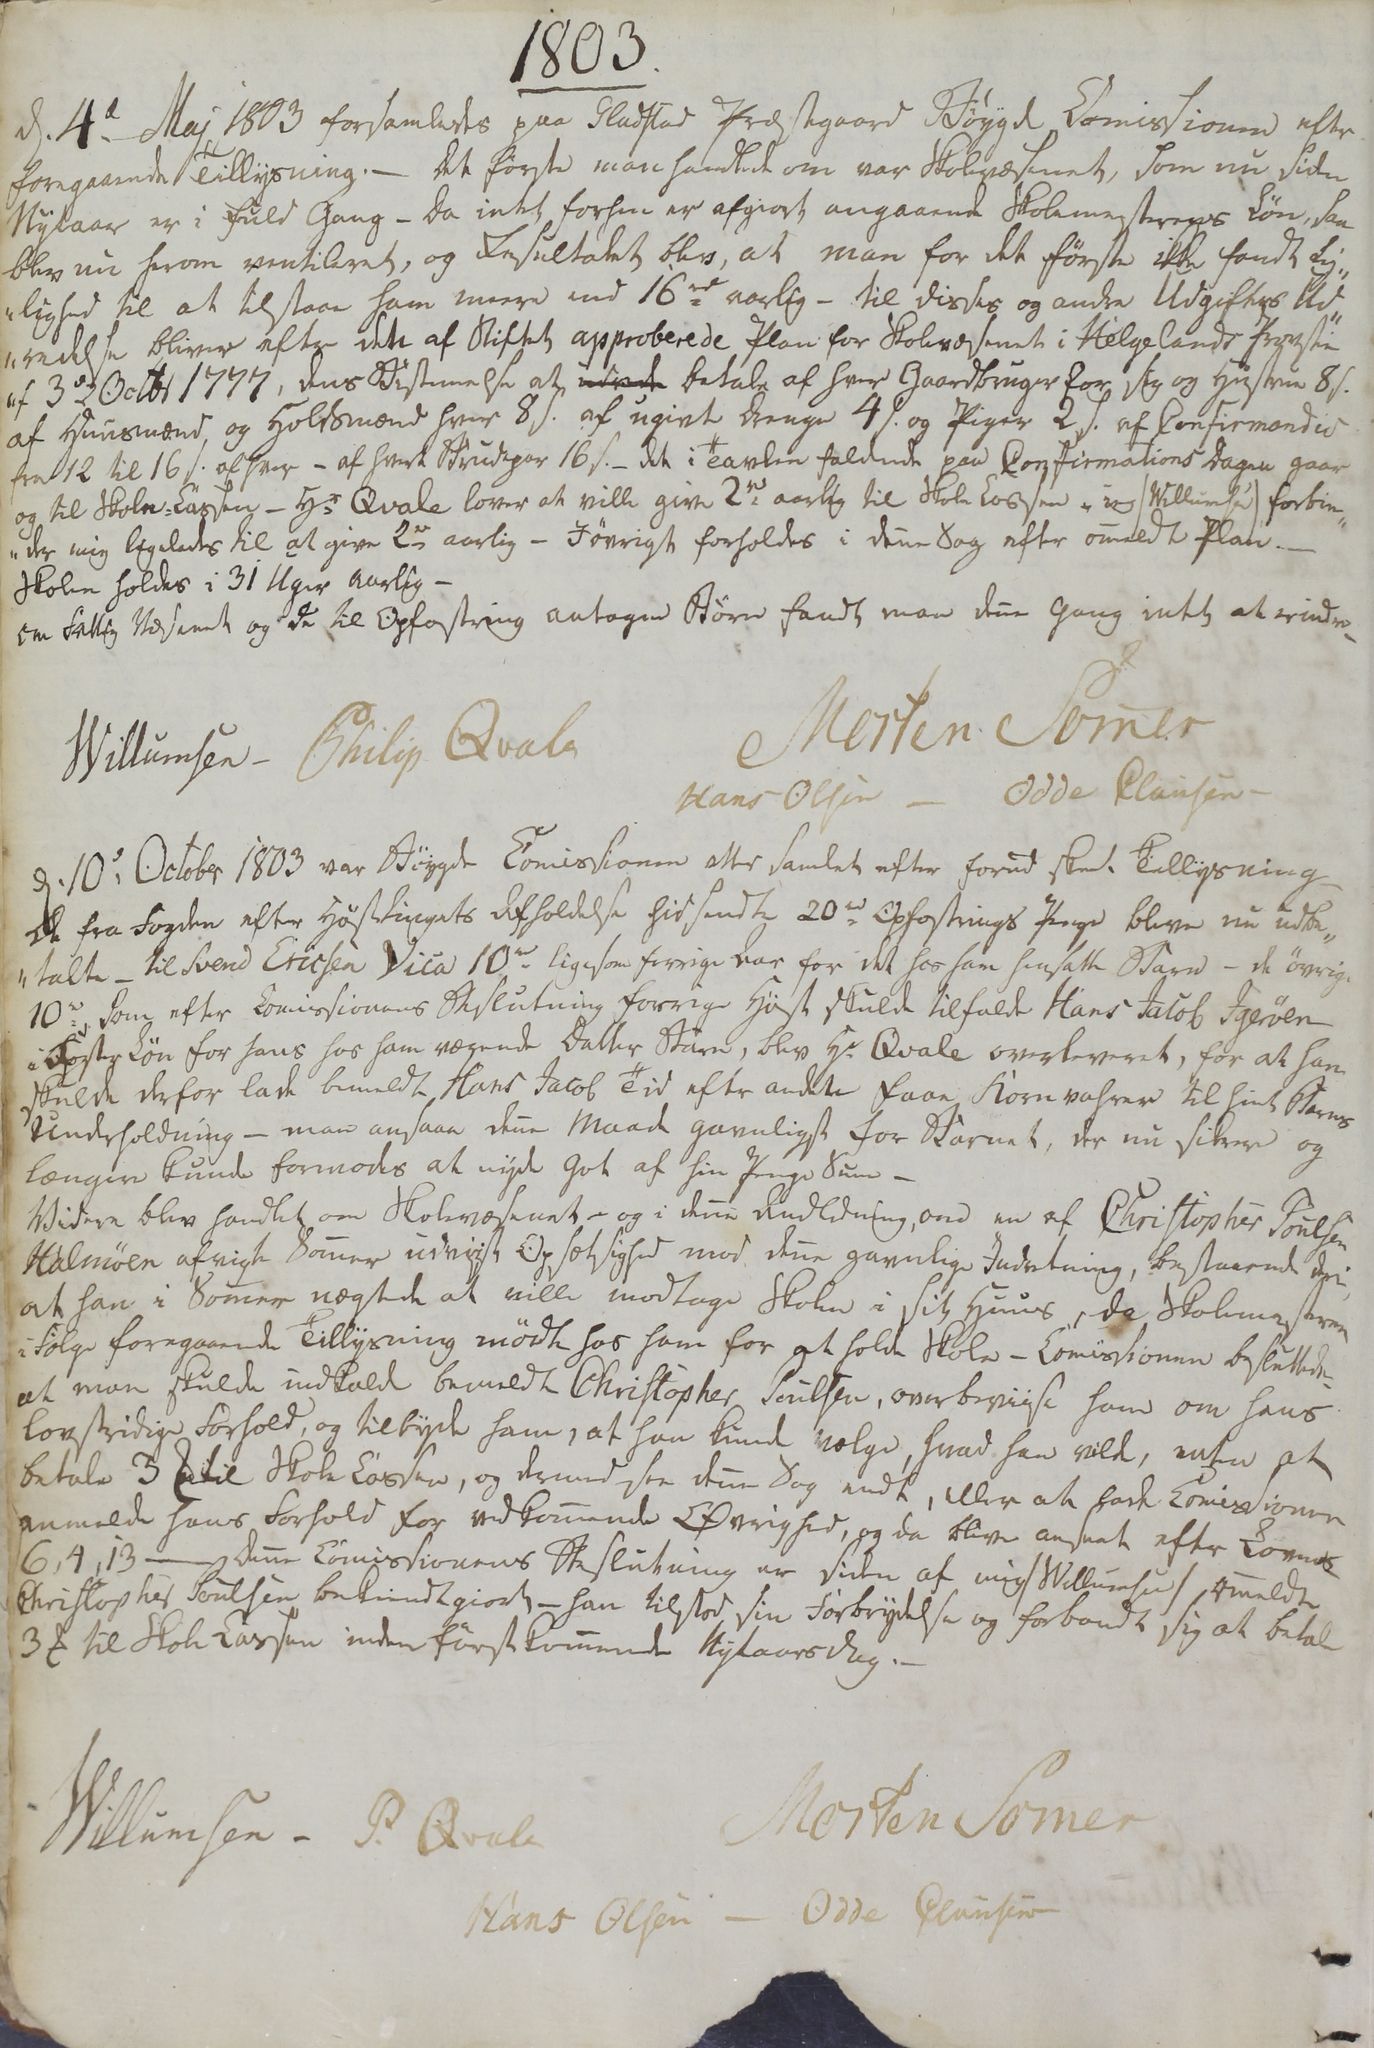 1803.
d. 4de Maj 1803 forsamledes paa Gladstad Præstegaard Bøygde Comissionen efter
foregaaende Tillysning. — Det første man handlede om var Skolevæsenet, som nu siden
Nytaar er i fuld Gang – Da intet forhen er afgiort angaaende Skolemesterens Løn, saa
blev nu herom ventileret, og Resultatet blev, at man for det første ikke fandt Lej„
„lighed til at tilstaae ham meere end 16 rd aarlig – til disses og andre Udgifters Ud„
„redelse bliver efter den af Stiftet approberede Plan for Skolevæsenet i Helgelands Provstie
af 3de Octbr 1777, dens Bestemmelse at betale af hver Gaardbruger for sig og Hustrue 8 s.
af Huusmænd, og Holdsmænd hver 8 s. af ugivt Drenge 4 s. og Piger 2 s. af Confirmandis
fra 12 til 16 s. af hver – af hvert Brudepar 16 s. – det i Tavlen faldende paa Confirmations Dagen gaar
og til Skole-Cassen – Hr Qvale lover at ville give 2 rd aarlig til Skole Cassen – jeg /Willumsen/ forbin„
„der mig ligeledes til at give 2 rd aarlig – Iøvrigt forholdes i denne Sag efter omeldte Plan. —
Skolen holdes i 31 Uger aarlig –
om Fattig Væsenet og de til Opfostring antagne Børn fandt man denne Gang intet at erindre –
Willumsen – Philip Qvale Morten Somer
Hans Olsen — Odde Clausen –
d. 10de October 1803 var Bøygde Comissionen atter samlet efter forud skeet Tillysning
De fra Fogden efter Høsttingets Afholdelse hidsendte 20 rd Opfostrings Penge bleve nu udbe„
„talte – til Svend Ericsen Vica 10 rd ligesom forrige Aar for det hos ham hensatte Barn – de øvrige
10 rd, som efter Comissionens Beslutning forrige Høst skulde tilfalde Hans Jacob Igerøen
i Foster Løn for hans hos ham værende Datter Barn, blev Hr Qvale overleveret, for at han
skulde derfor lade bemeldte Hans Jacob Tid efter anden faae Kornvahrer til hint Barns
Underholdning – man ansaae denne Maade gavnligst for Barnet, der nu sikrere og
længere kunde formodes at nyde Got af hin Penge Sum –
Widere blev handlet om Skolevæsenet – og i denne Anledning, om en af Christopher Poulsen
Halmøen afvigte Sommer udviist Opsætsighed mod denne gavnlige Indretning, bestaaende deri,
at han i Sommer nægtede at ville modtage Skolen i sit Huus, da Skolemesteren
i Følge foregaaende Tillysning mødte hos ham for at holde Skole – Comissionen besluttede
at man skulde indkalde bemeldte Christopher Poulsen, overbeviise ham om hans
lovstridige Forhold, og tilbyde ham, at han kunde vælge, hvad han vilde, enten at
betale 3 til Skole Cassen, og dermed see denne Sag endt, eller at lade Comissionen
anmelde hans Forhold for vedkommende Øvrighed, og da blive anseet efter Lovens
6, 4, 13 — Denne Comissionens Beslutning er siden af mig /Willumsen/ omeldte
Christopher Poulsen bekiendtgiort – han tilstod sin Forbrydelse og forbandt sig at betale
3 til Skole Cassen inden førstkommende Nytaarsdag. —
Willumsen – P. Qvale Morten Somer
Hans Olsen — Odde Clausen